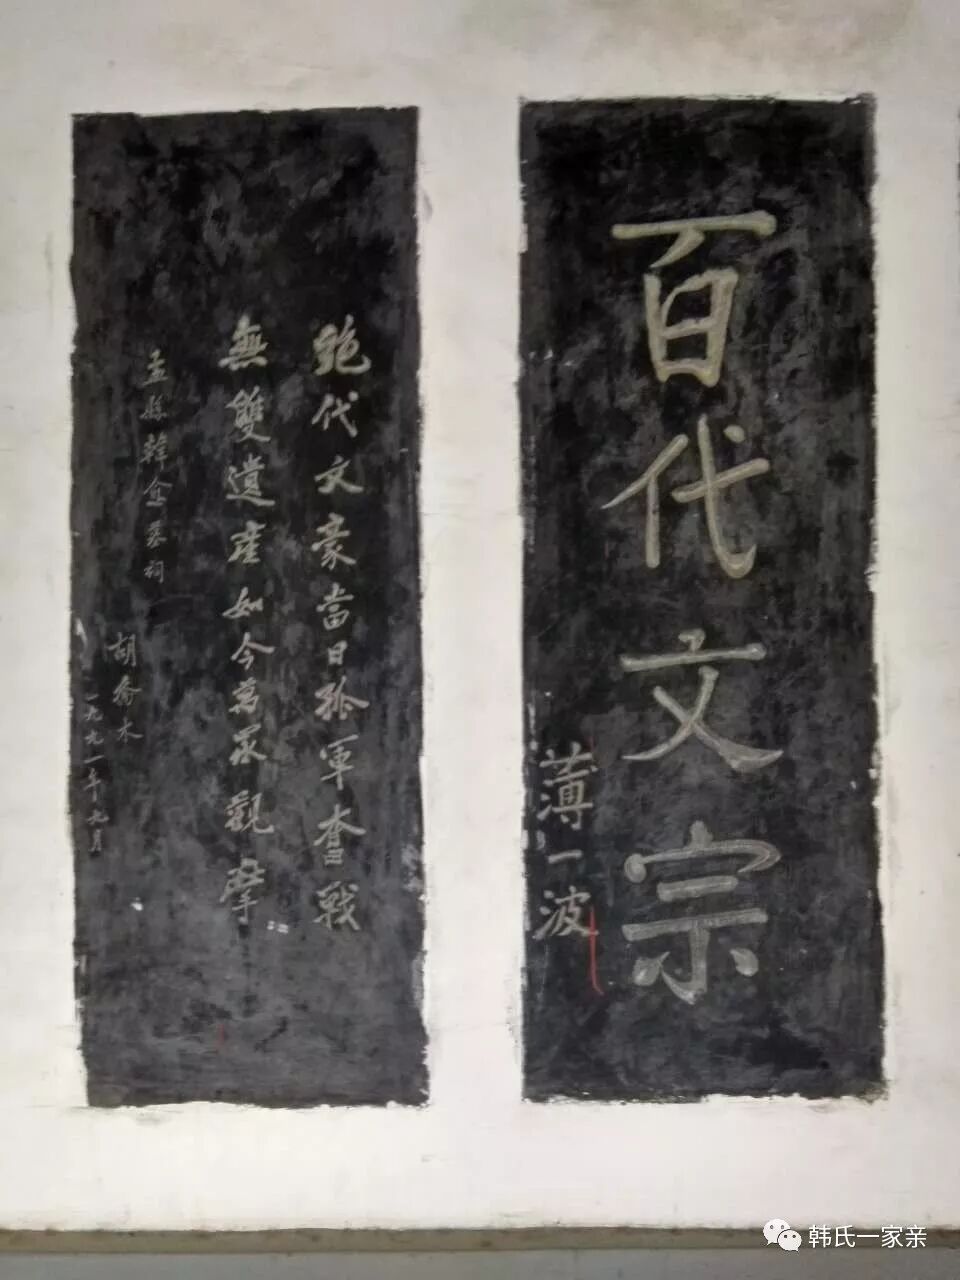 百代文宗
薄一波
絶代文豪當日孤軍奮戰
無雙遺産如今萬眾觀摩
孟縣韓愈墓祠
胡喬木
一九九一年九月
韩氏一家亲